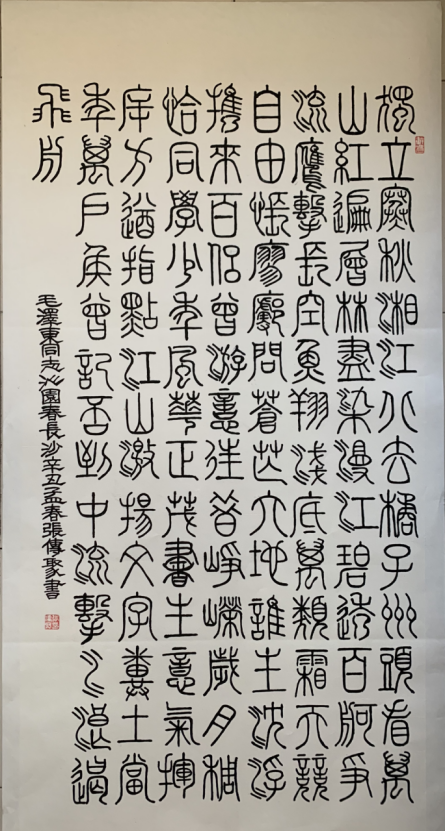 獨立寒秋湘江北去橘子州頭看萬
山紅遍層林盡染漫江碧透百舸爭
流鷹擊長空魚翔淺底萬類霜天競
自由悵寥廓問蒼茫大地誰主沈浮
攜來百侶曾游憶往昔崢嶸歲月稠
恰同學少年風華正茂書生意氣揮
斥方遒指點江山激揚文字糞土當
年萬戶侯曾記否到中流擊水浪遏
飛舟
毛澤東同志沁園春長沙辛丑孟春張傳聚書